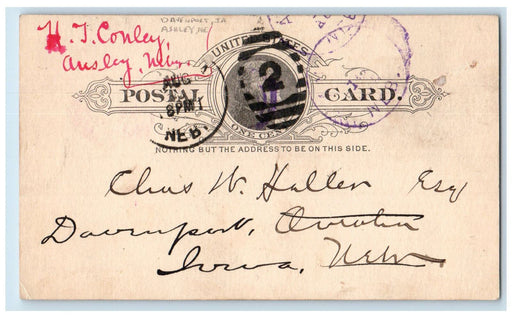 DAVENPORT, IA
ASHLEY NE
H. T. Conley,
Ansley, Nebr.
UNITED STATES
AUG
8 PM
NEB.
2
POSTAL CARD.
ONE CENT
NOTHING BUT THE ADDRESS TO BE ON THIS SIDE.
Chas W. Haller Esq
Davenport, Omaha
Iowa, Nebr.